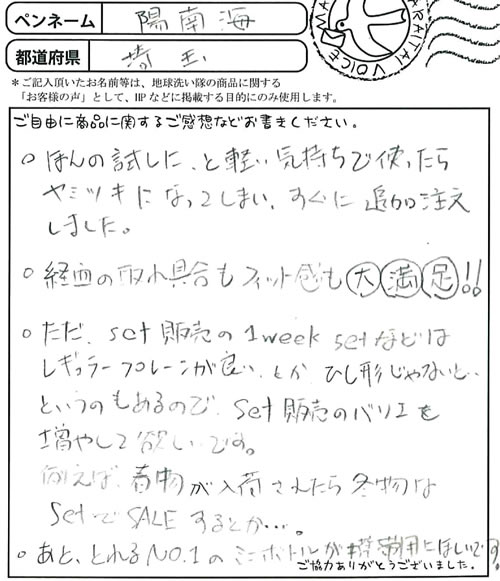 ペンネーム 陽南海
都道府県 埼玉
ARAITAI VOICE
＊ご記入頂いたお名前等は、地球洗い隊の商品に関する
「お客様の声」として、HPなどに掲載する目的にのみ使用します。
ご自由に商品に関するご感想などお書きください。
○ほんの試しに、と軽い気持ちで使ったら
ヤミツキになってしまい、すぐに追加注文
しました。
○経血の取れ具合もフィット感も大満足!!
○ただ、set販売の1week setなどは
レギュラープレーンが良い、とか ひし形じゃないと…
というのもあるので、set販売のバリエを
増やして欲しいです。
例えば、春物が入荷されたら冬物は
setでSALEするとか…。
○あと、とれるNO.1のミニボトルが携帯用にほしいです
ご協力ありがとうございました。